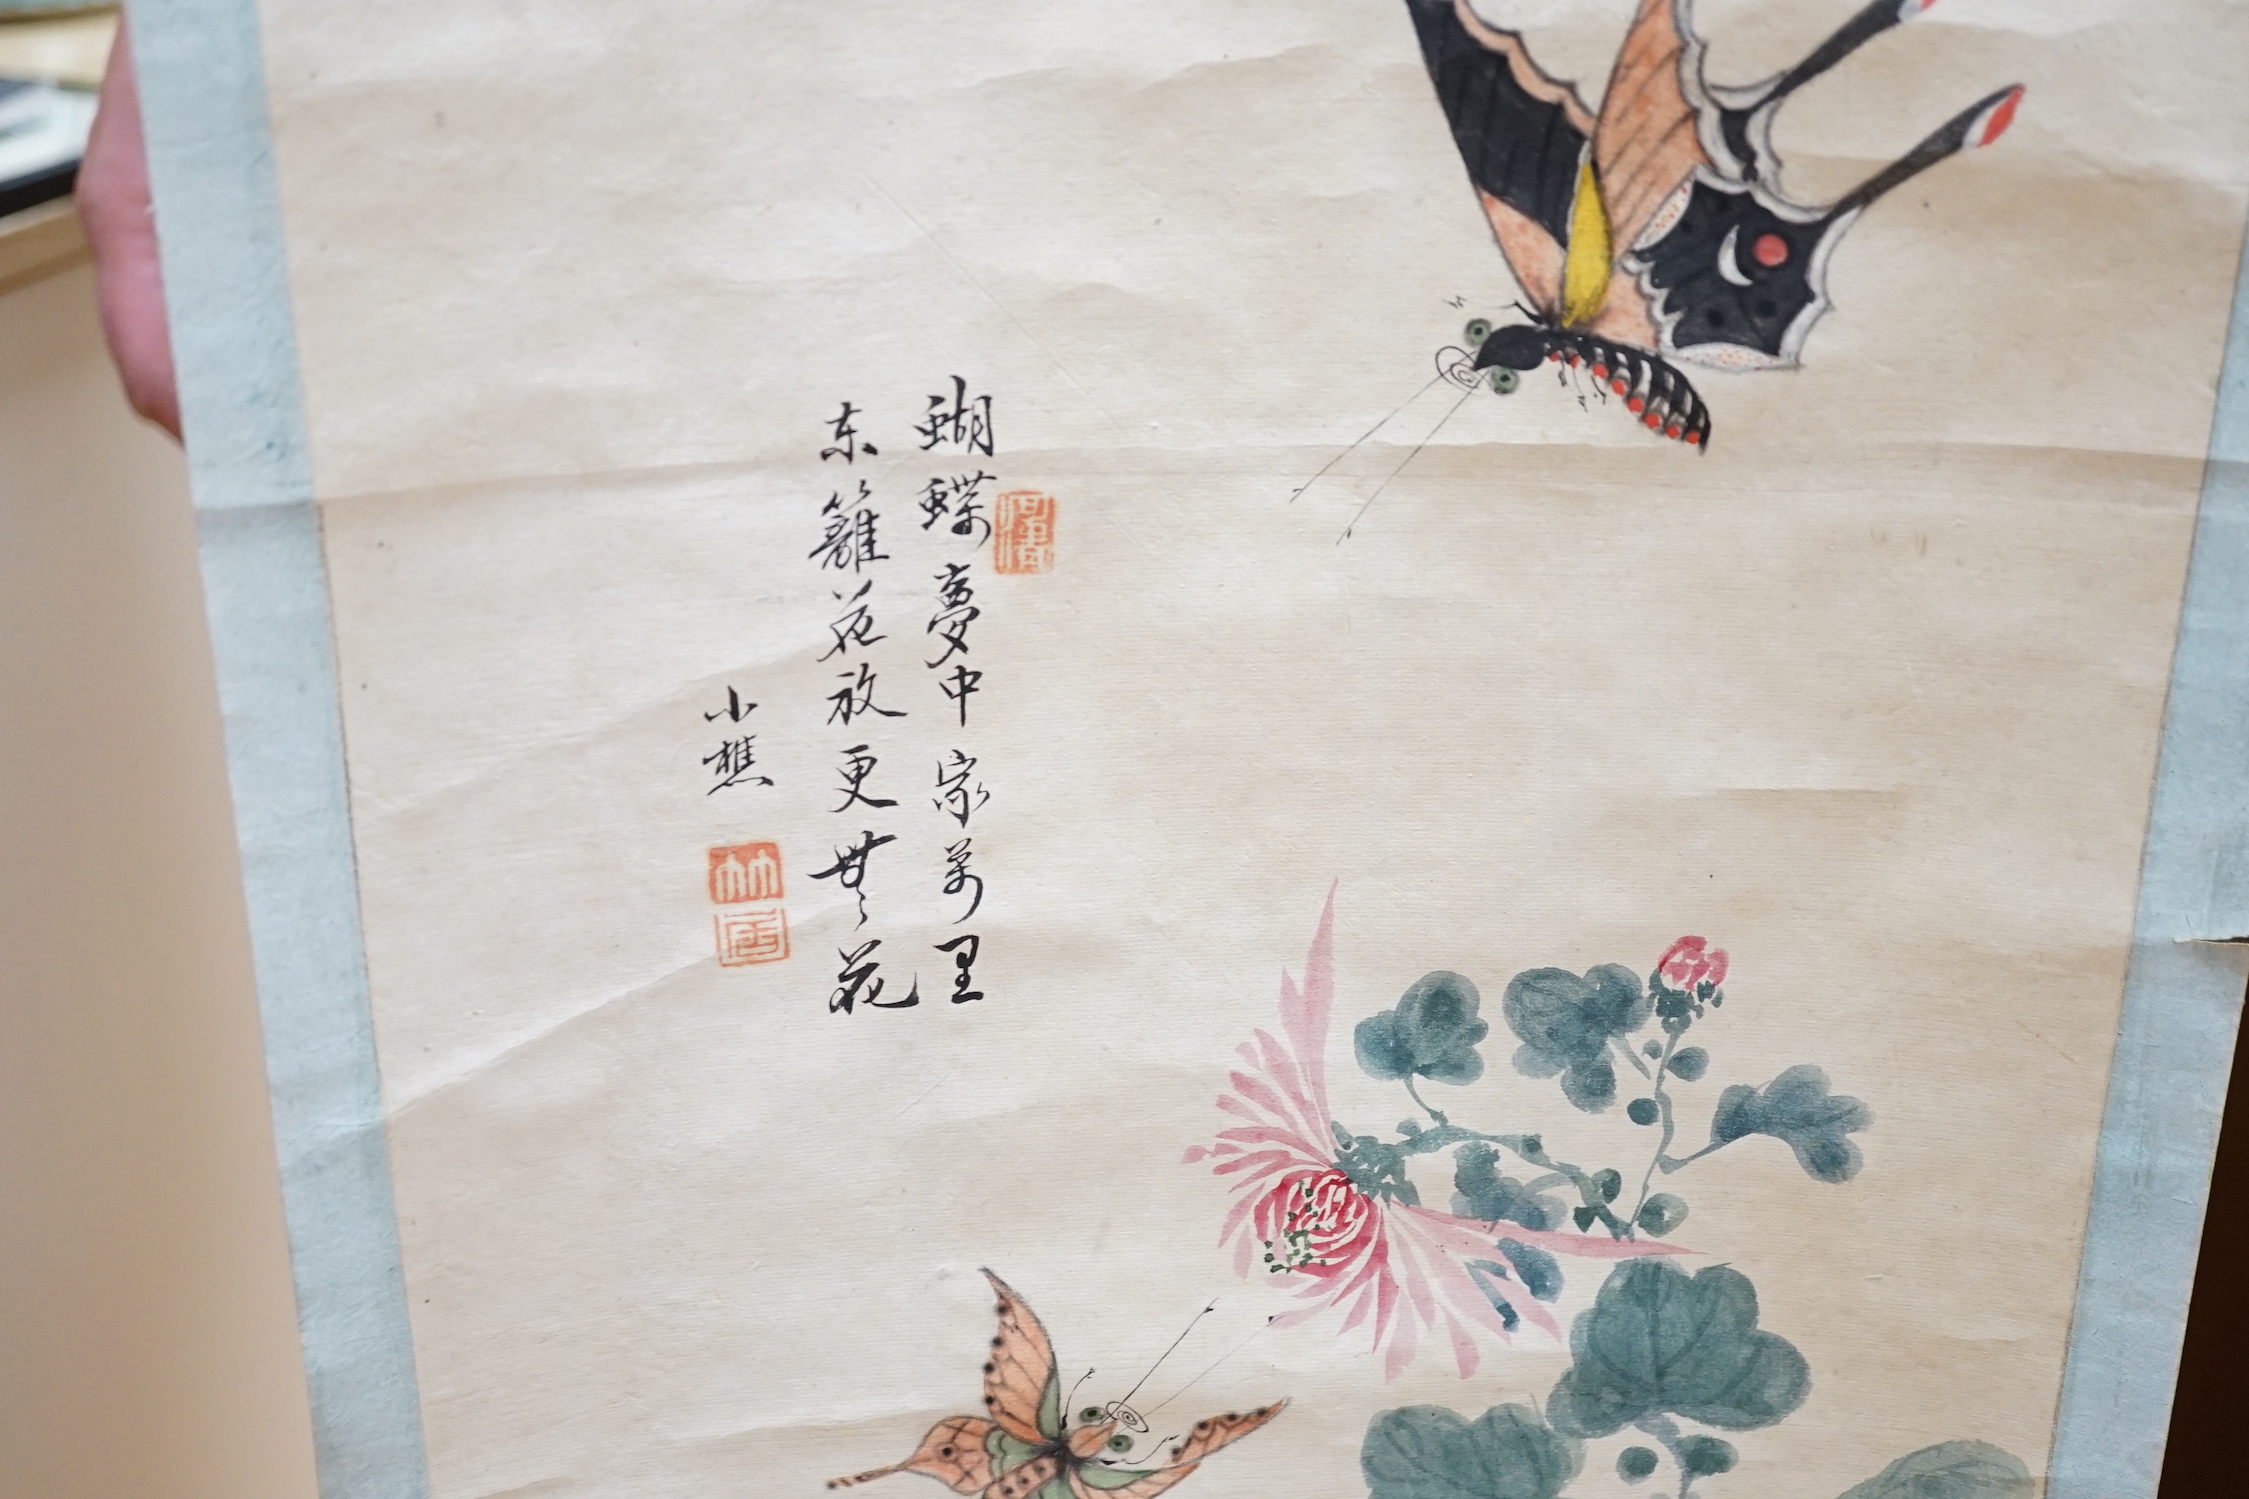 蝴蝶夢中家萬里
东籬花放更無花
小樵